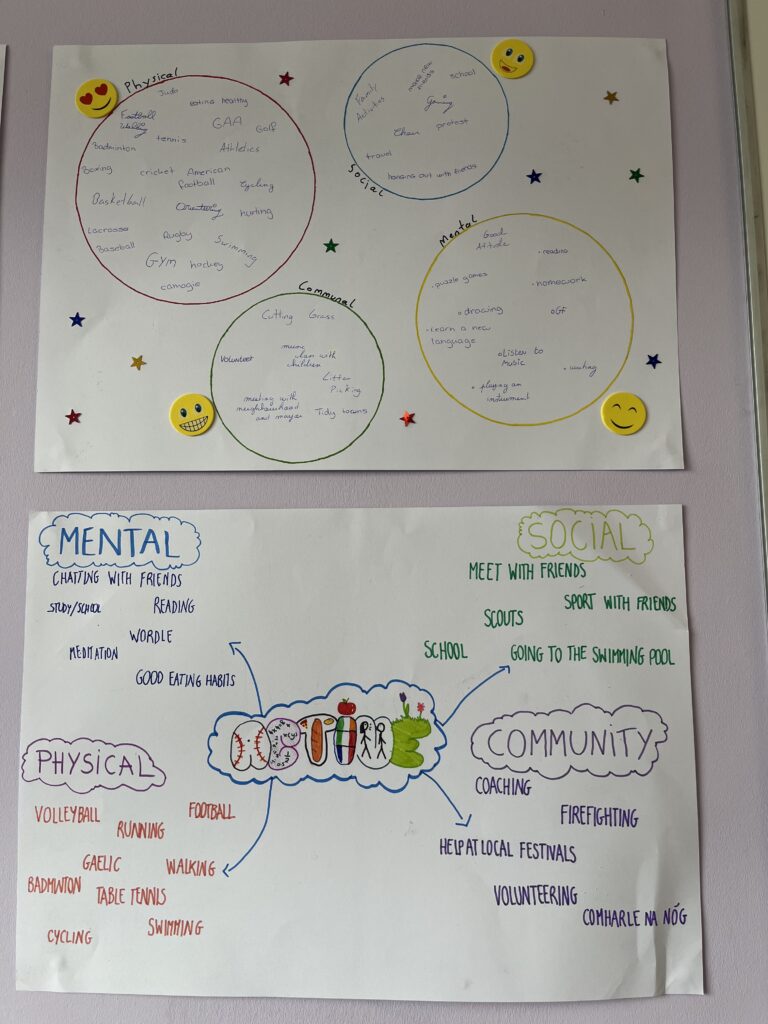 Physical
Judo
eating healthy
Football
Walking
GAA
Golf
tennis
Badminton
Athletics
Boxing
cricket
American
football
Cycling
Basketball
Orienteering
hurling
Lacrosse
Baseball
Rugby
Swimming
GYM
hockey
camogie
Social
Family
Activities
make new
friends
school
Gaming
protest
travel
hanging out with friends
Communal
Cutting Grass
Volunteer
music
with
children
Litter
Picking
meeting with
neighbourhood
and mayor
Tidy towns
Mental
Good
Attitude
• reading
• puzzle games
• homework
• drawing
• GF
• Learn a new
language
• Listen to
Music
• writing
• playing an
instrument
MENTAL
CHATTING WITH FRIENDS
STUDY/SCHOOL
READING
WORDLE
MEDITATION
GOOD EATING HABITS
SOCIAL
MEET WITH FRIENDS
SPORT WITH FRIENDS
SCOUTS
SCHOOL
GOING TO THE SWIMMING POOL
ACTIVE
PHYSICAL
VOLLEYBALL
FOOTBALL
RUNNING
GAELIC
WALKING
BADMINTON
TABLE TENNIS
CYCLING
SWIMMING
COMMUNITY
COACHING
FIREFIGHTING
HELP AT LOCAL FESTIVALS
VOLUNTEERING
COMHARLE NA NÓG